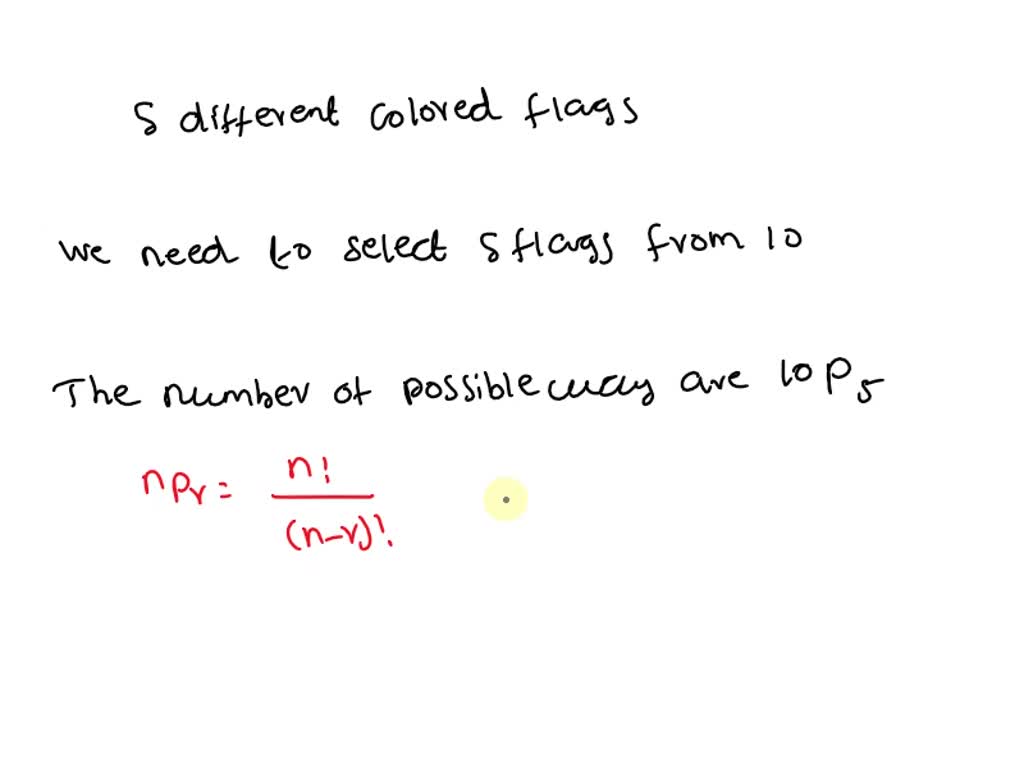 5 different colored flags
we need to select 5 flags from 10
The number of possible way are 10P5
nPr = n! / (n-r)!